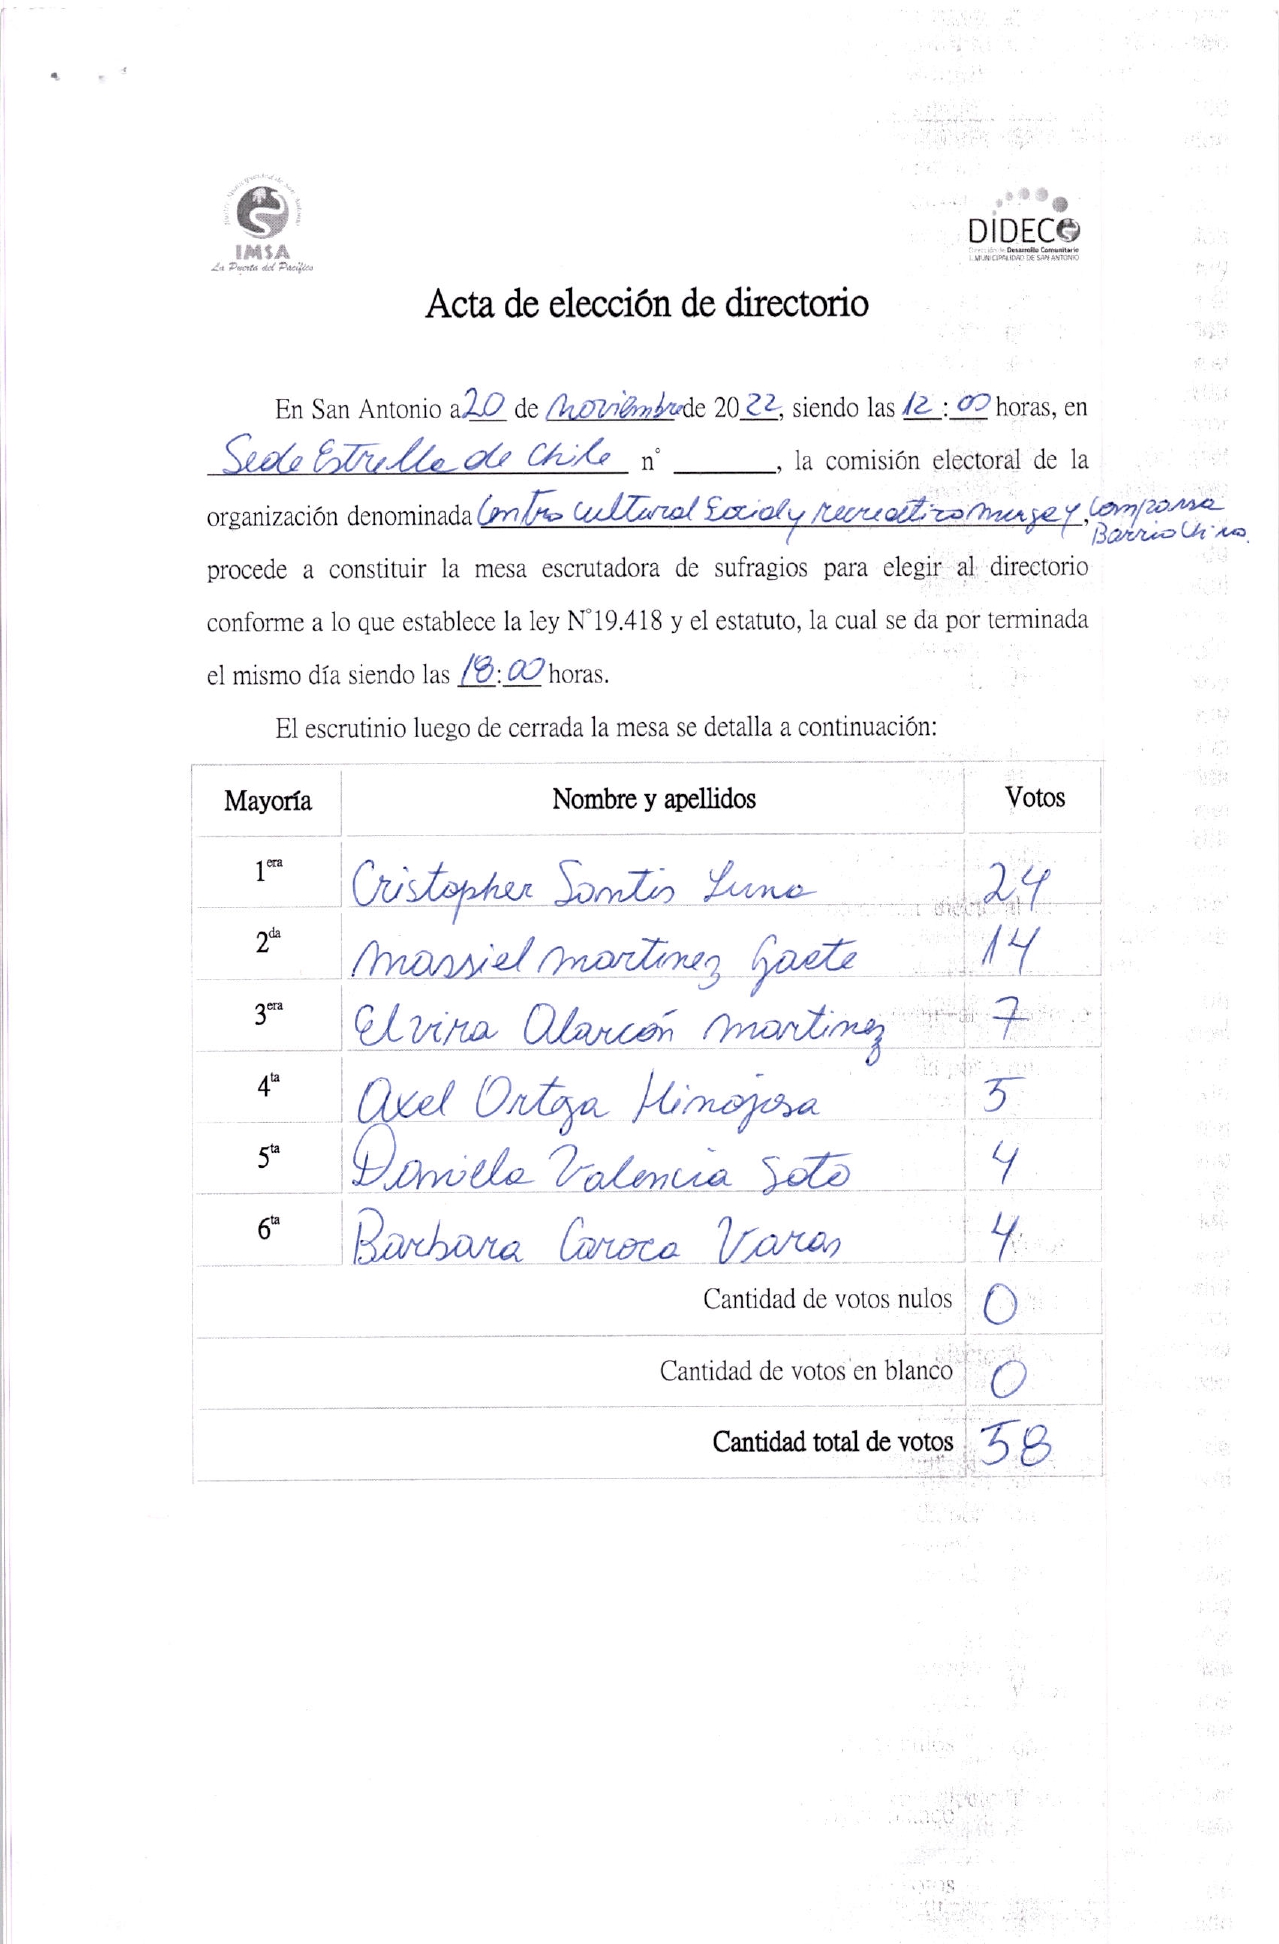 IMSA
La Puerta del Pacífico
DIDECO
Dirección de Desarrollo Comunitario
I. MUNICIPALIDAD DE SAN ANTONIO
Acta de elección de directorio
En San Antonio a 20 de noviembre de 2022, siendo las 12:00 horas, en
Sede Estrella de Chile n° ______, la comisión electoral de la
organización denominada Centro Cultural Social y recreativo murga y, Comparsa
Barrio Chino.
procede a constituir la mesa escrutadora de sufragios para elegir al directorio
conforme a lo que establece la ley N°19.418 y el estatuto, la cual se da por terminada
el mismo día siendo las 18:00 horas.
El escrutinio luego de cerrada la mesa se detalla a continuación:
Mayoría Nombre y apellidos Votos
1era Cristopher Santis Luna 24
2da Massiel Martinez Gaete 14
3era Elvira Alarcón Martinez 7
4ta Axel Ortega Hinojosa 5
5ta Daniela Valencia Soto 4
6ta Barbara Caroca Varas 4
Cantidad de votos nulos 0
Cantidad de votos en blanco 0
Cantidad total de votos 58